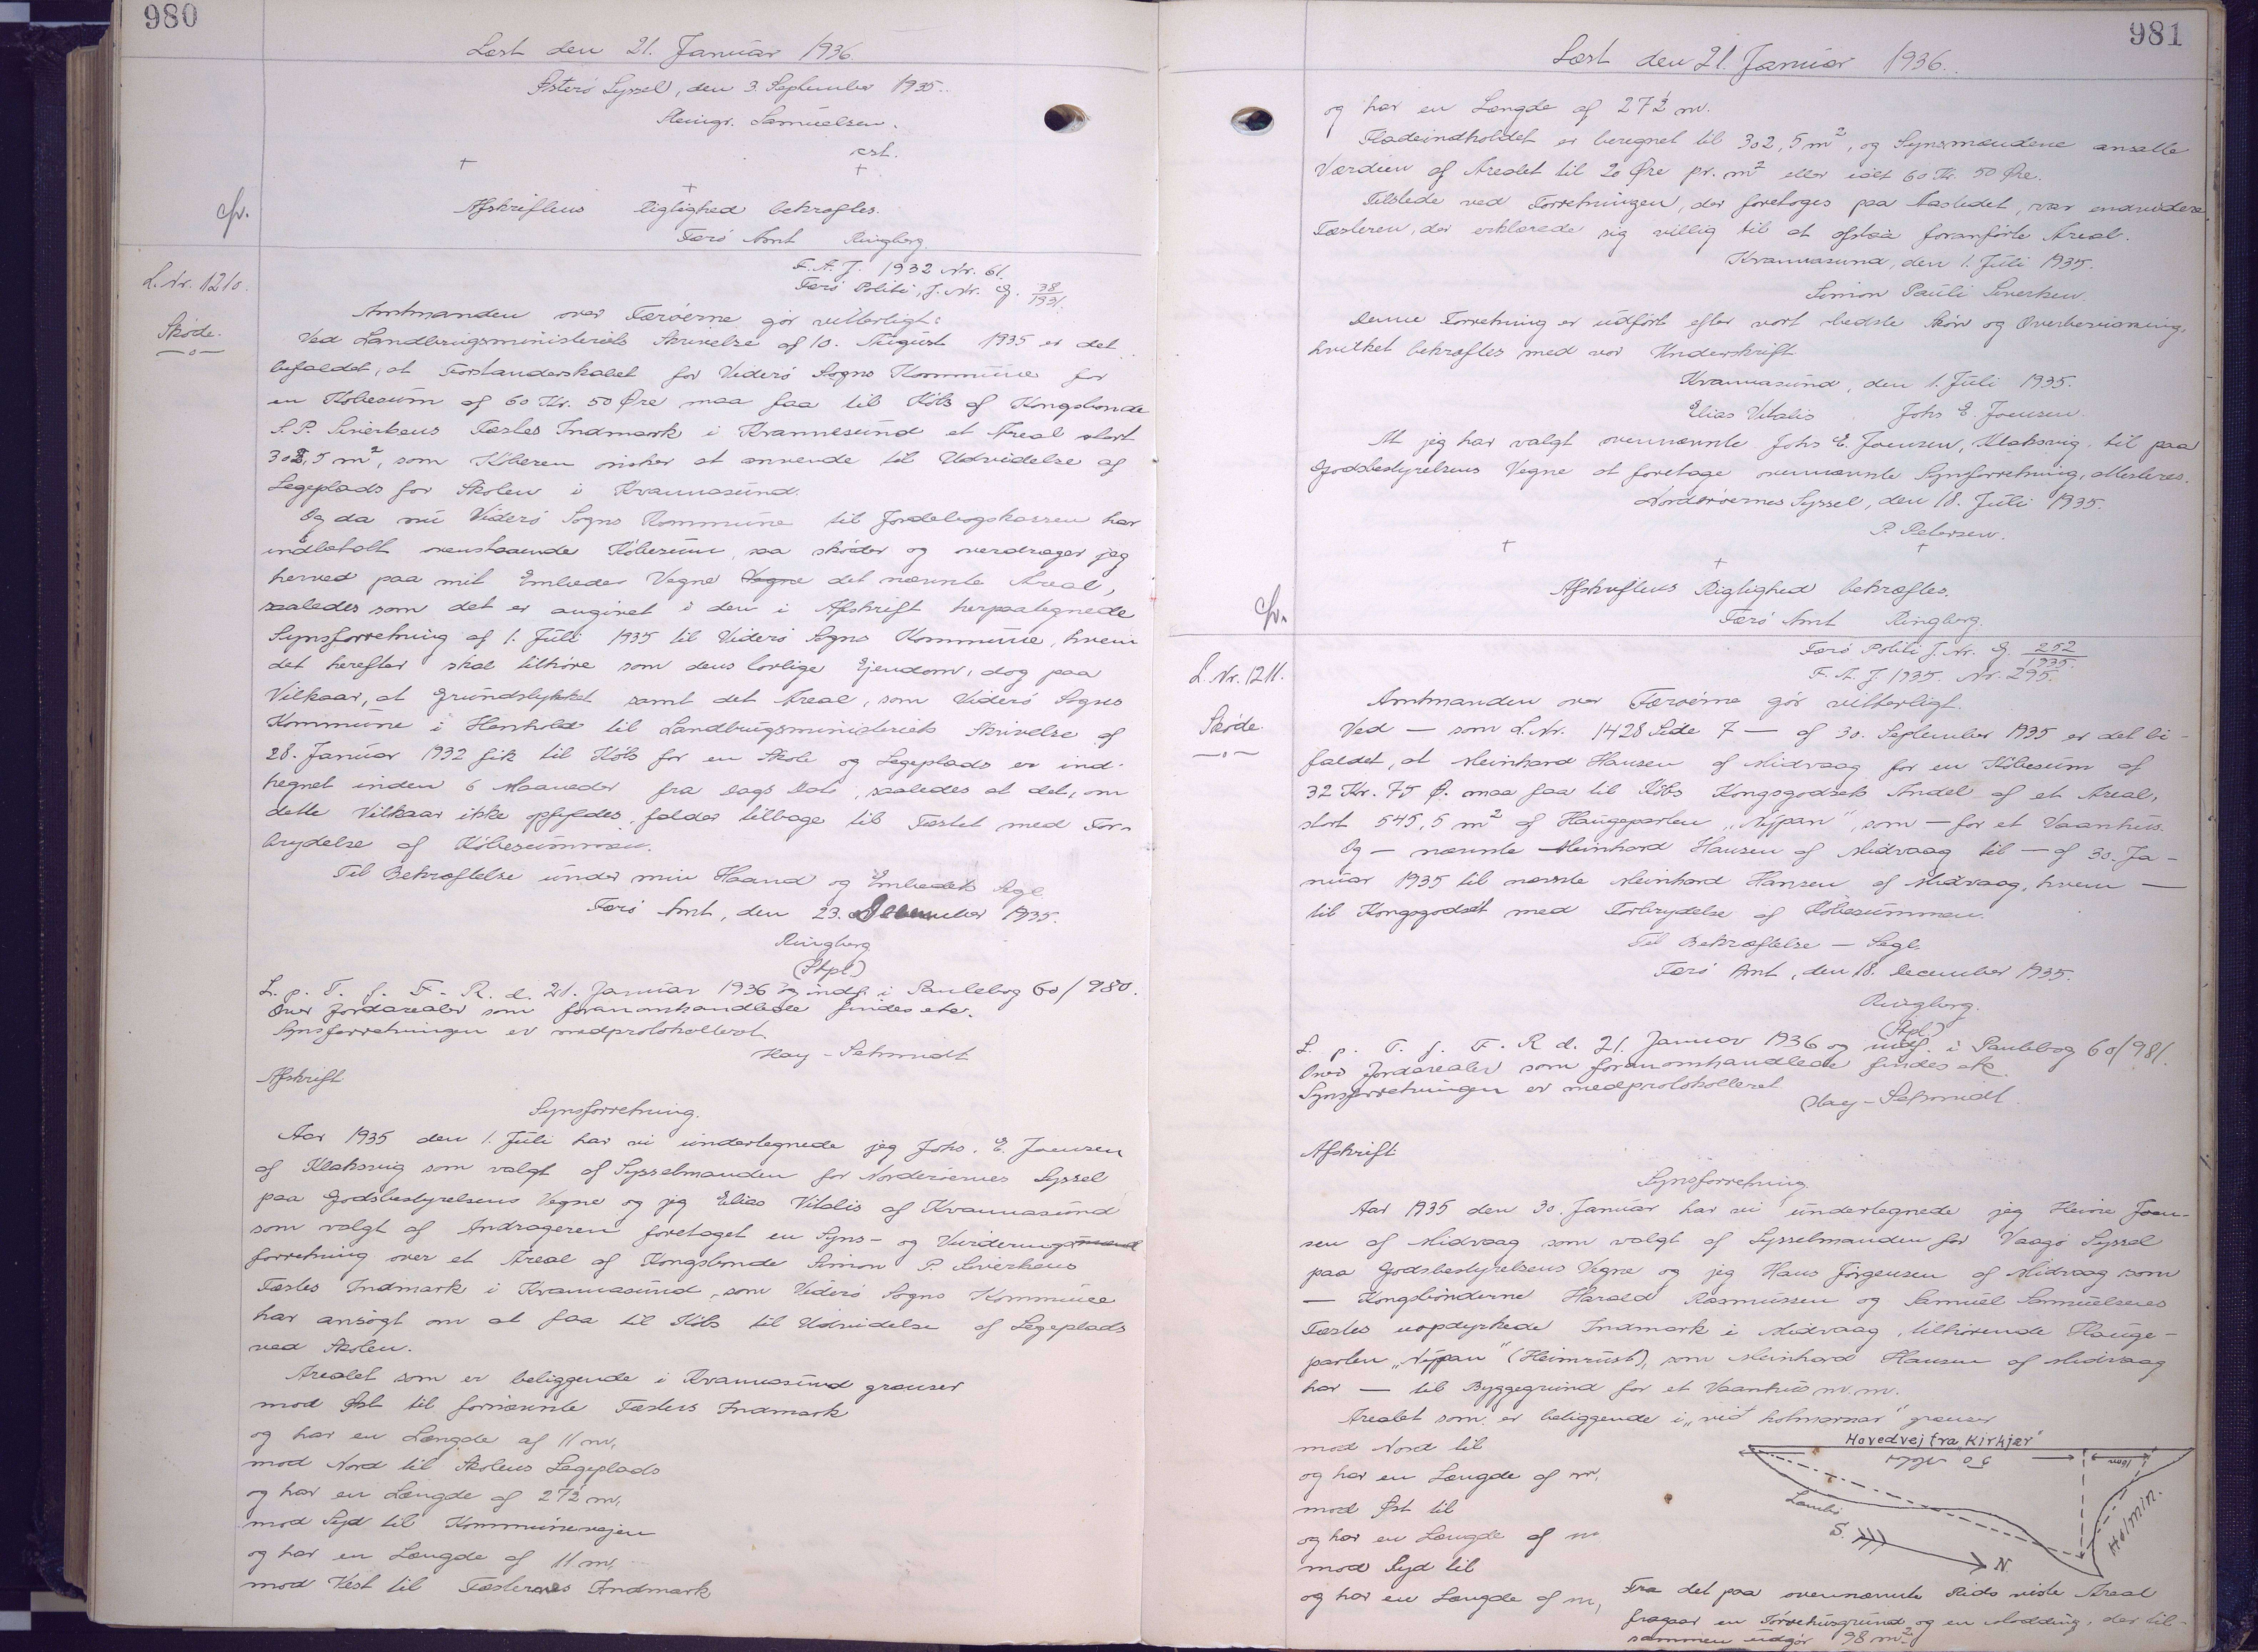 980
Læst den 21. Januar 1936.
Østerø Syssel, den 3. September 1935.
Heingr. Samuelsen.
cst.
+ + +
Afskriftens Rigtighed bekræftes.
Færø Amt Ringberg.
L. Nr. 1210.
Skøde.
F. A. J. 1932 Nr. 61.
Færø Politi, J. Nr. G. 38/1931.
Amtmanden over Færøerne gør vitterligt:
Ved Landbrugsministeriets Skrivelse af 10. August 1935 er det
bifaldet, at Forstanderskabet for Viderø Sogns Kommune for
en Købesum af 60 Kr. 50 Øre maa faa til Købs af Kongsbonde
S. P. Siverksens Fæstes Indmark i Kvannesund et Areal stort
302,5 m², som Køberen ønsker at anvende til Udvidelse af
Legeplads for Skolen i Kvannasund.
Og da nu Viderø Sogns Kommune til Jordebogskassen har
indbetalt ovenstaaende Købesum, saa skøder og overdrager jeg
herved paa mit Embedes Vegne Vegne det nævnte Areal,
saaledes som det er angivet i den i Afskrift herpaategnede
Synsforretning af 1. Juli 1935 til Viderø Sogns Kommune, hvem
det herefter skal tilhøre som dens lovlige Ejendom, dog paa
Vilkaar, at Grundstykket samt det Areal, som Viderø Sogns
Kommune i Henhold til Landbrugsministeriets Skrivelse af
28. Januar 1932 fik til Købs for en Skole og Legeplads er ind-
hegnet inden 6 Maaneder fra Dags Dato, saaledes at det, om
dette Vilkaar ikke opfyldes, falder tilbage til Fæstet med For-
brydelse af Købesummen.
Til Bekræftelse under min Haand og Embedets Segl
Færø Amt, den 23. December 1935.
Ringberg.
(Stpl)
L. p. T. f. F. R. d. 21. Januar 1936 og indf. i Pantebog 60/980.
Over Jordarealer som foranomhandlede findes etc.
Synsforretningen er medprotokolleret.
Hay-Schmidt
Afskrift
Synsforretning.
Aar 1935 den 1. Juli har vi undertegnede jeg Johs. E. Joensen
af Klaksvig som valgt af Sysselmanden for Norderøernes Syssel
paa Godsbestyrelsens Vegne og jeg Elias Vitalis af Kvannasund
som valgt af Andrageren foretaget en Syns- og Vurderingsmænd
forretning over et Areal af Kongsbonde Simon P. Siverksens
Fæstes Indmark i Kvannasund, som Viderø Sogns Kommune
har ansøgt om at faa til Købs til Udvidelse af Legeplads
ved Skolen.
Arealet som er beliggende i Kvannasund grænser
mod Øst til fornævnte Fæsters Indmark
og har en Længde af 11 m,
mod Nord til Skolens Legeplads
og har en Længde af 27½ m,
mod Syd til Kommunevejen
og har en Længde af 11 m,
mod Vest til Fæsterens Indmark
981
Læst den 21. Januar 1936.
og har en Længde af 27½ m.
Fladeindholdet er beregnet til 302,5 m², og Synsmændene ansatte
Værdien af Arealet til 20 Øre pr. m² eller ialt 60 Kr. 50 Øre.
Tilstede ved Forretningen, der foretoges paa Aastedet, var endvidere
Fæsteren, der erklærede sig villig til at afstaa foranførte Areal.
Kvannasund, den 1. Juli 1935.
Simon Pauli Siverksen.
Denne Forretning er udført efter vort bedste Skøn og Overbevisning,
hvilket bekræftes med vor Underskrift
Kvannasund, den 1. Juli 1935.
Elias Vitalis Johs E. Joensen.
At jeg har valgt ovennævnte Johs E. Joensen, Klaksvig, til paa
Godsbestyrelsens Vegne at foretage nævnte Synsforretning, attesteres.
Norderøernes Syssel, den 18. Juli 1935.
P. Petersen.
+ + +
Afskriftens Rigtighed bekræftes.
Færø Amt Ringberg.
L. Nr. 1211.
Skøde
Færø Politi J. Nr. G. 252/1935.
F. A. J. 1935. Nr. 295.
Amtmanden over Færøerne gør vitterligt.
Ved — som L. Nr. 1428 Side 7 — af 30. September 1935 er det bi-
faldet, at Meinhard Hansen af Midvaag for en Købesum af
32 Kr. 75 Ø. maa faa til Købs Kongsgodsets Andel af et Areal,
stort 545,5 m² af Haugeparten „Nýpan", som — for et Vaanhus.
Og — nævnte Meinhard Hansen af Midvaag til — af 30. Ja-
nuar 1935 til nævnte Meinhard Hansen af Midvaag, hvem —
til Kongsgodset med Forbrydelse af Købesummen.
Til Bekræftelse — Segl.
Færø Amt, den 18. December 1935.
Ringberg.
(Stpl.)
L. p. T. f. F. R d. 21. Januar 1936 og indf. i Pantebog 60/981.
Over Jordarealer som foranomhandlede findes etc.
Synsforretningen er medprotokolleret.
Hay-Schmidt.
Afskrift
Synsforretning.
Aar 1935 den 30. Januar har vi undertegnede jeg Heine Joen-
sen af Midvaag som valgt af Sysselmanden for Vaagø Syssel
paa Godsbestyrelsens Vegne og jeg Hans Jørgensen af Midvaag som
— Kongsbønderne Harald Rasmussen og Samuel Samuelsens
Fæstes uopdyrkede Indmark i Midvaag, tilhørende Hauge-
parten „Nýpan" (Heimrúst), som Meinhard Hansen af Midvaag
har — til Byggegrund for et Vaanhus m.m.
Arealet som er beliggende i „við hólmarnar" grænser
mod Nord til
og har en Længde af m,
mod Øst til
og har en Længde af m
mod Syd til
og har en Længde af m,
Hovedvej fra „Kirkjar"
50
10m
S.
N.
Holmin.
Fra det paa ovennævnte Rids viste Areal
fragaar en Tørvehusgrund og en Modding, der til-
sammen udgør 98 m²